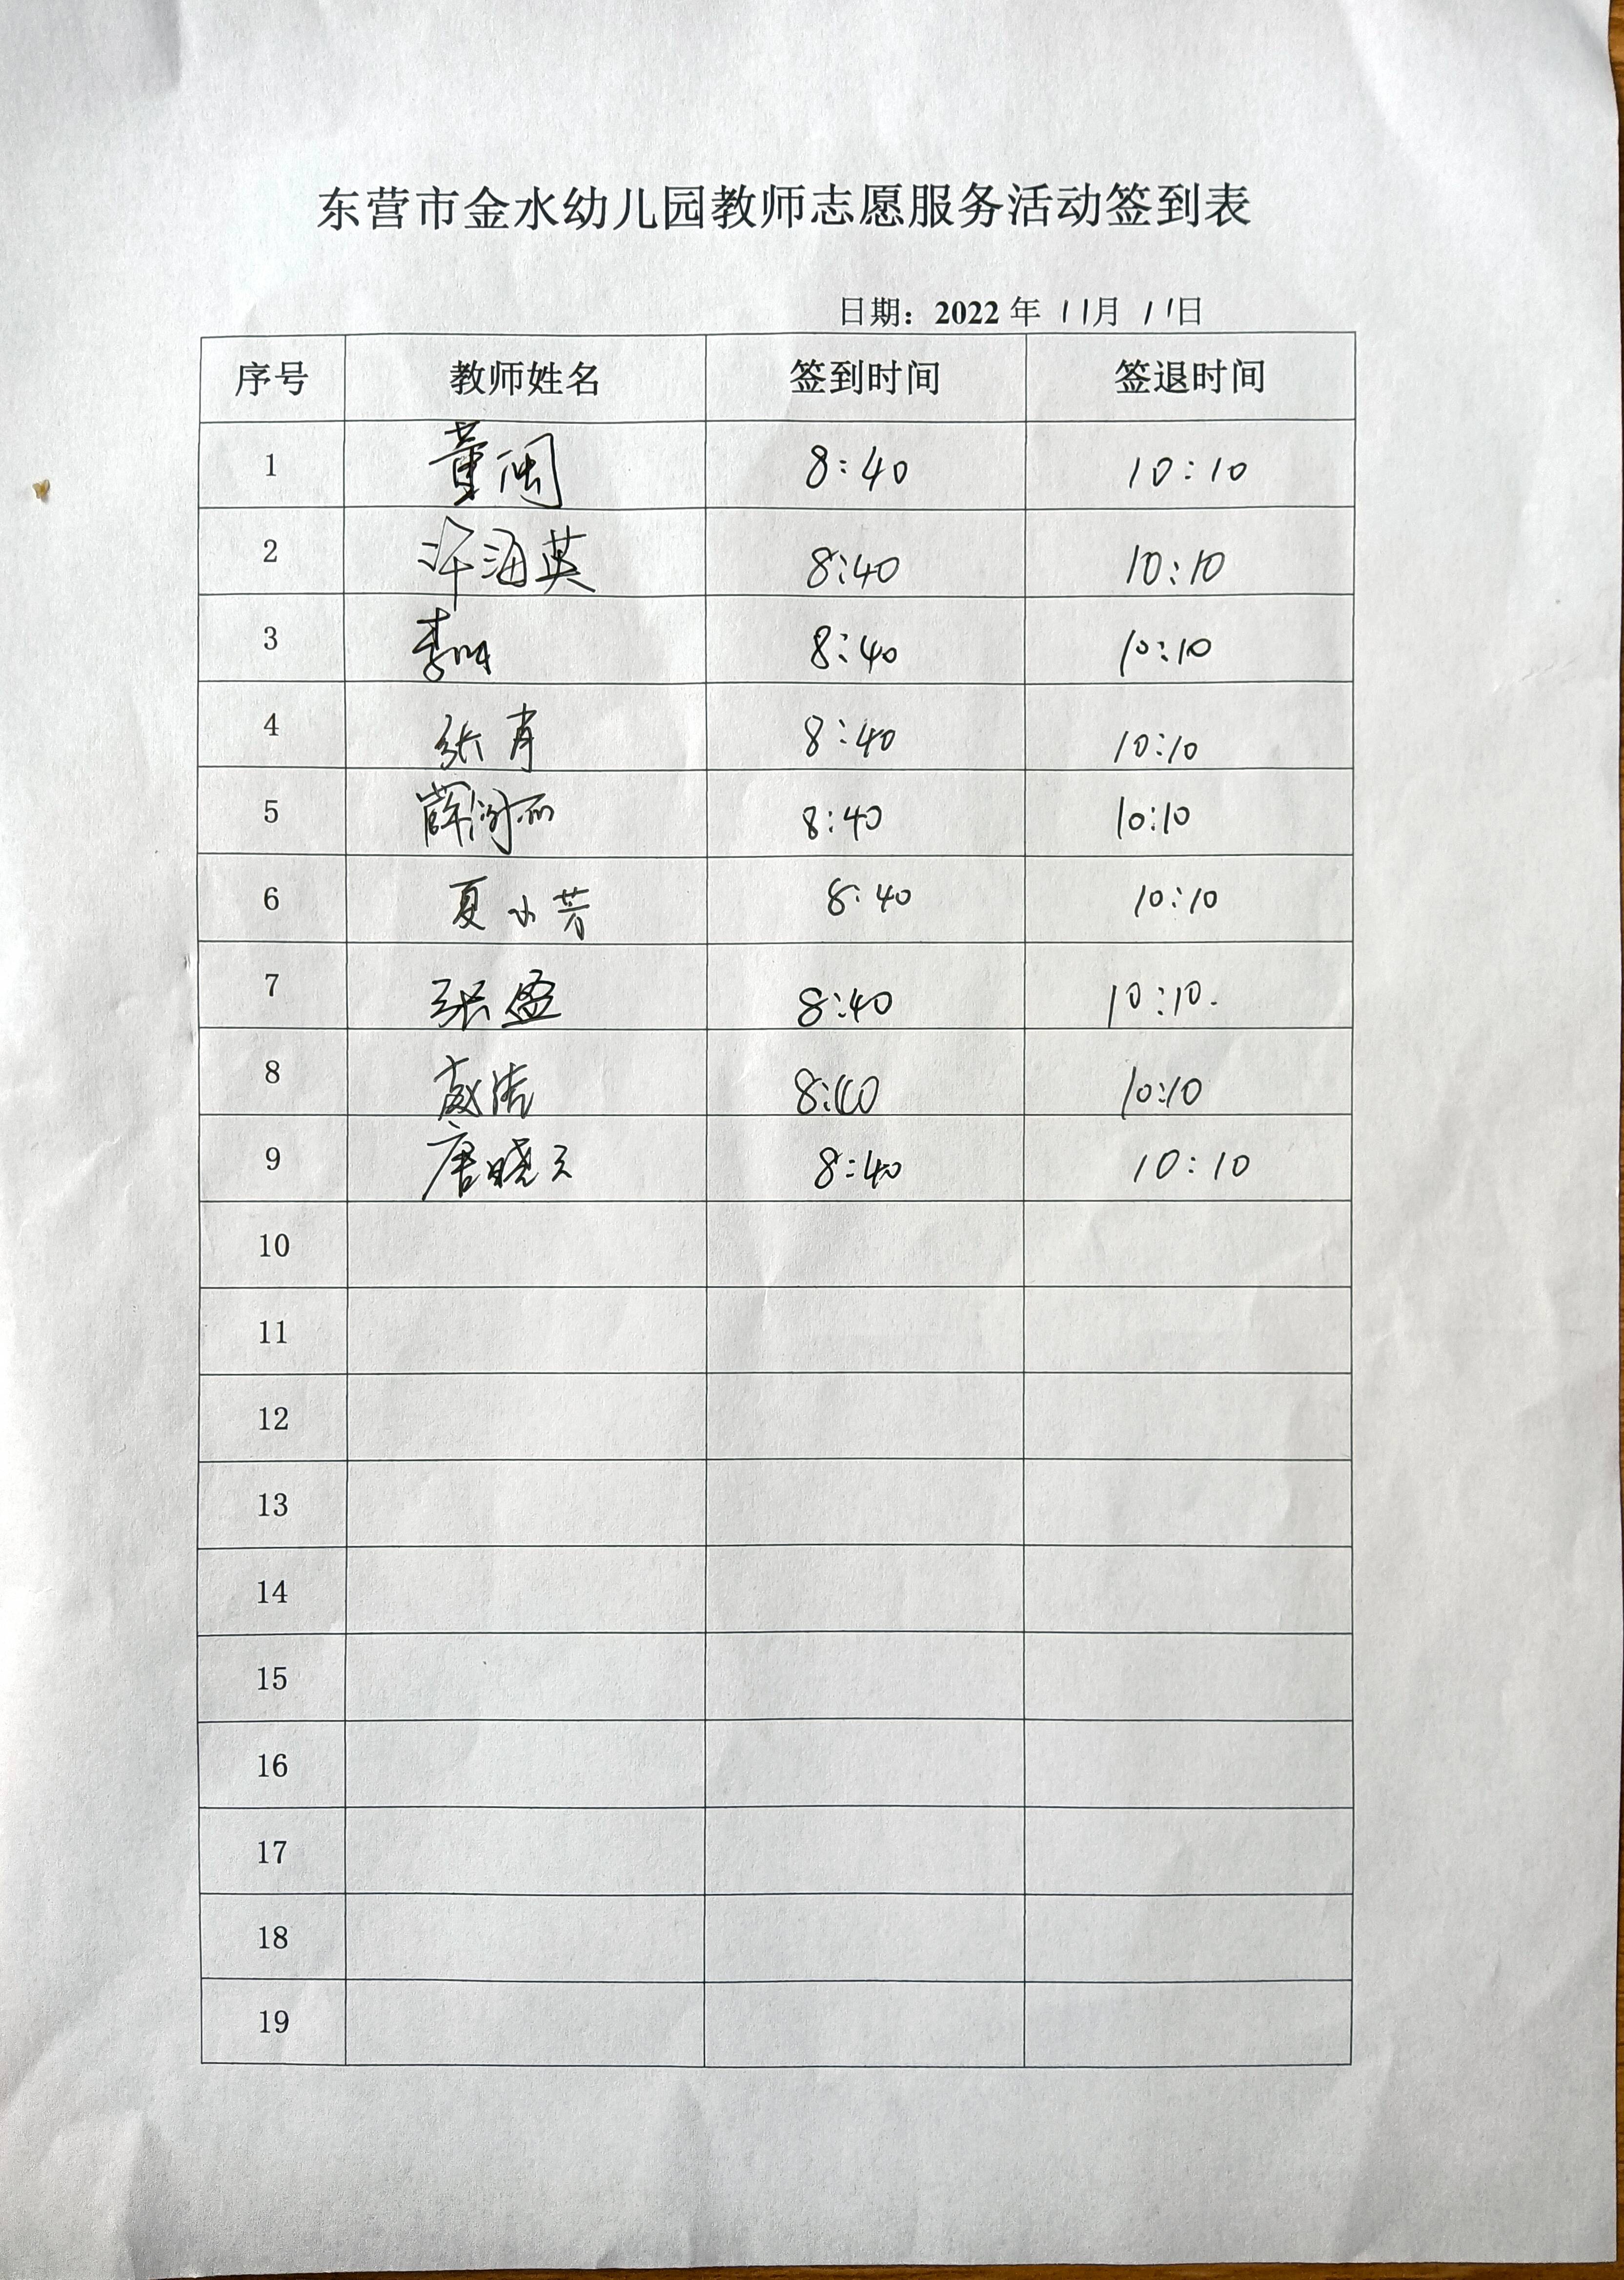 东营市金水幼儿园教师志愿服务活动签到表
日期：2022 年 11月 11日
序号 教师姓名 签到时间 签退时间
1 董闽 8:40 10:10
2 许海英 8:40 10:10
3 李 8:40 10:10
4 张肖 8:40 10:10
5 薛 丽 8:40 10:10
6 夏小芳 8:40 10:10
7 张盈 8:40 10:10.
8 8:40 10:10
9 唐晓天 8:40 10:10
10
11
12
13
14
15
16
17
18
19